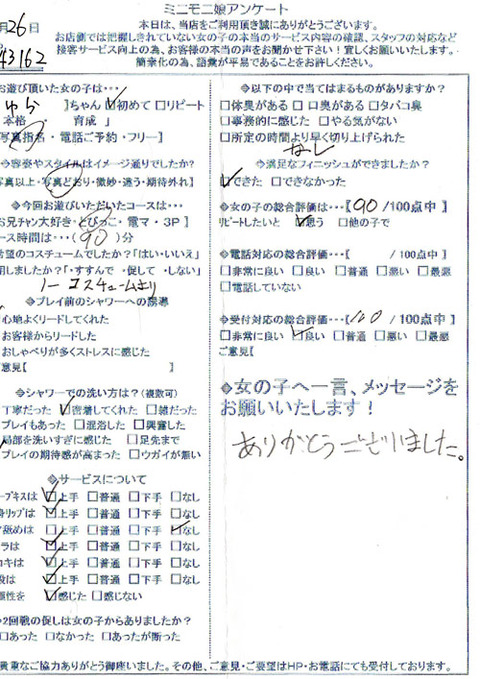 ミニモニ娘アンケート
本日は、当店をご利用頂き誠にありがとうございます。
お店側では把握しきれていない女の子の本当のサービス内容の確認、スタッフの対応など
接客サービス向上の為、お客様の本当の声をお聞かせ下さい！宜しくお願いいたします。
簡素化の為、語彙が平易であることをお許しください。
月26日
43162
お遊び頂いた女の子は…
ゆら 】ちゃん □初めて □リピート
本格 育成 」
写真指名・電話ご予約・フリー】
◆容姿やスタイルはイメージ通りでしたか？
写真以上・写真どおり・微妙・違う・期待外れ】
◆今回お遊びいただいたコースは…
お兄チャン大好き・とびっこ・電マ・3P】
ース時間は…(90)分
希望のコスチュームでしたか？「はい・いいえ」
用しましたか？・すすんで ・促して ・しない」
ノーコスチュームより
◆プレイ前のシャワーへの誘導
心地よくリードしてくれた
お客様からリードした
おしゃべりが多くストレスに感じた
意見【 】
◆シャワーでの洗い方は？(複数可)
丁寧だった □密着してくれた □雑だった
プレイもあった □混浴した □興奮した
局部を洗いすぎに感じた □足先まで
プレイの期待感が高まった □ウガイが無い
◆サービスについて
ープキスは □上手 □普通 □下手 □なし
身リップは □上手 □普通 □下手 □なし
舐めは □上手 □普通 □下手 □なし
ラは □上手 □普通 □下手 □なし
コキは □上手 □普通 □下手 □なし
股は □上手 □普通 □下手 □なし
性を □感じた □感じない
◆2回戦の促しは女の子からありましたか？
□あった □なかった □あったが断った
◆以下の中で当てはまるものがありますか？
□体臭がある □口臭がある □タバコ臭
□事務的に感じた □やる気がない
□所定の時間より早く切り上げられた
なし
◆満足なフィニッシュができましたか？
□できた □できなかった
◆女の子の総合評価は…【90/100点中】
リピートしたいと □思う □他の子で
◆電話対応の総合評価…【 /100点中】
□非常に良い □良い □普通 □悪い □最悪
□電話していない
◆受付対応の総合評価…【100/100点中】
□非常に良い □良い □普通 □悪い □最悪
ご意見【
◆女の子へ一言、メッセージを
お願いいたします！
ありがとうございました。
貴重なご協力ありがとう御座いました。その他、ご意見・ご要望はHP・お電話にても受付しております。